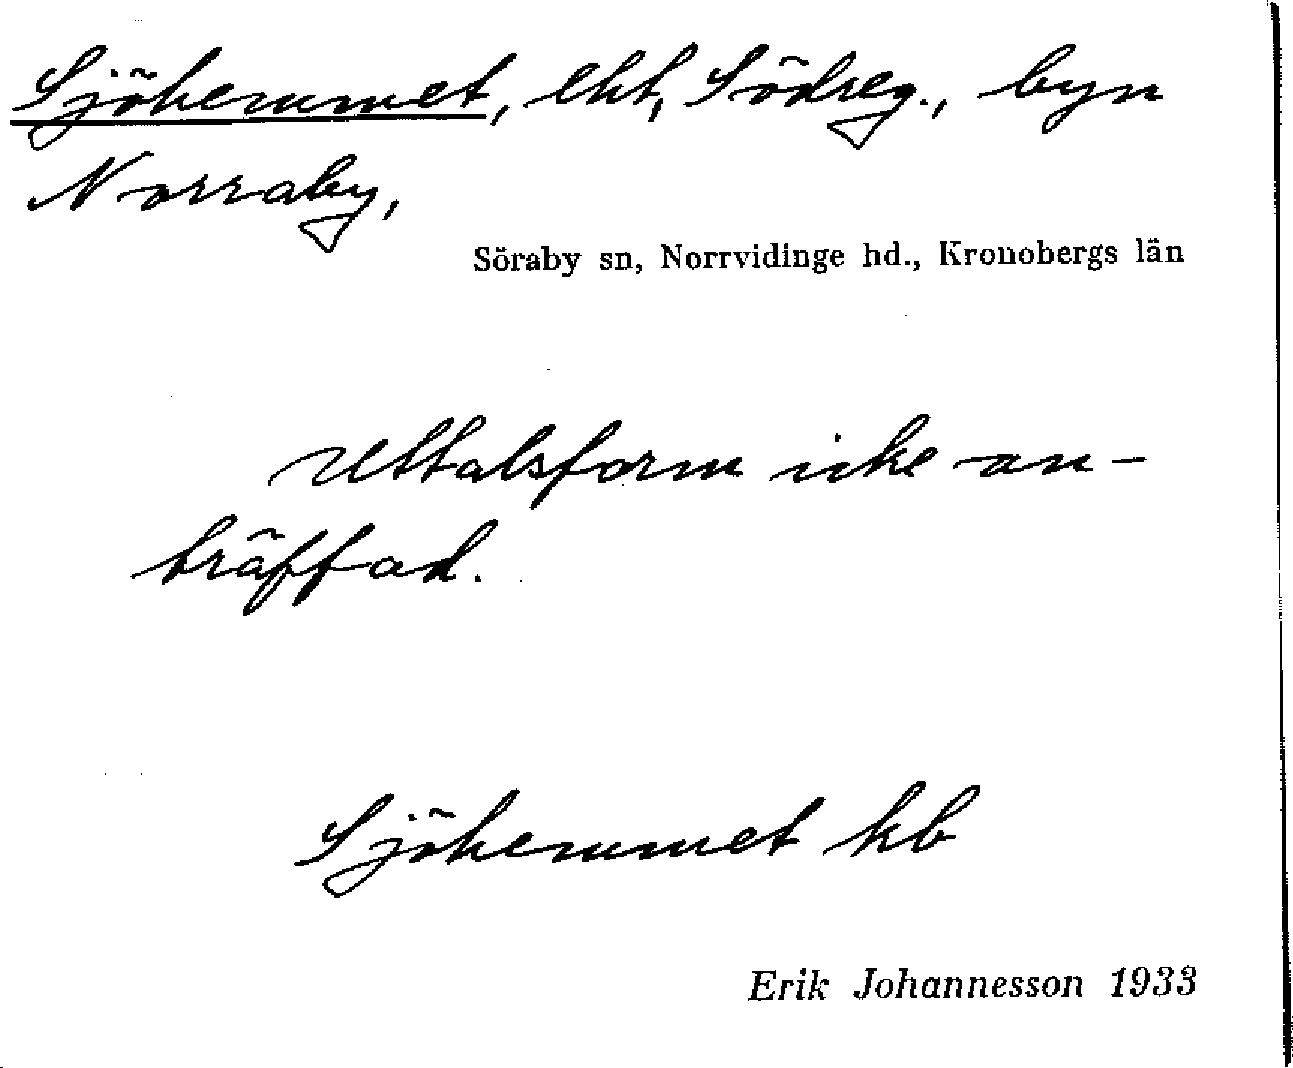 Sjöhemmet, lht, Södreg., byn
Norraby,
Söraby sn, Norrvidinge hd., Kronobergs län
Uttalsform icke an-
träffad.
Sjöhemmet kb
Erik Johannesson 1933